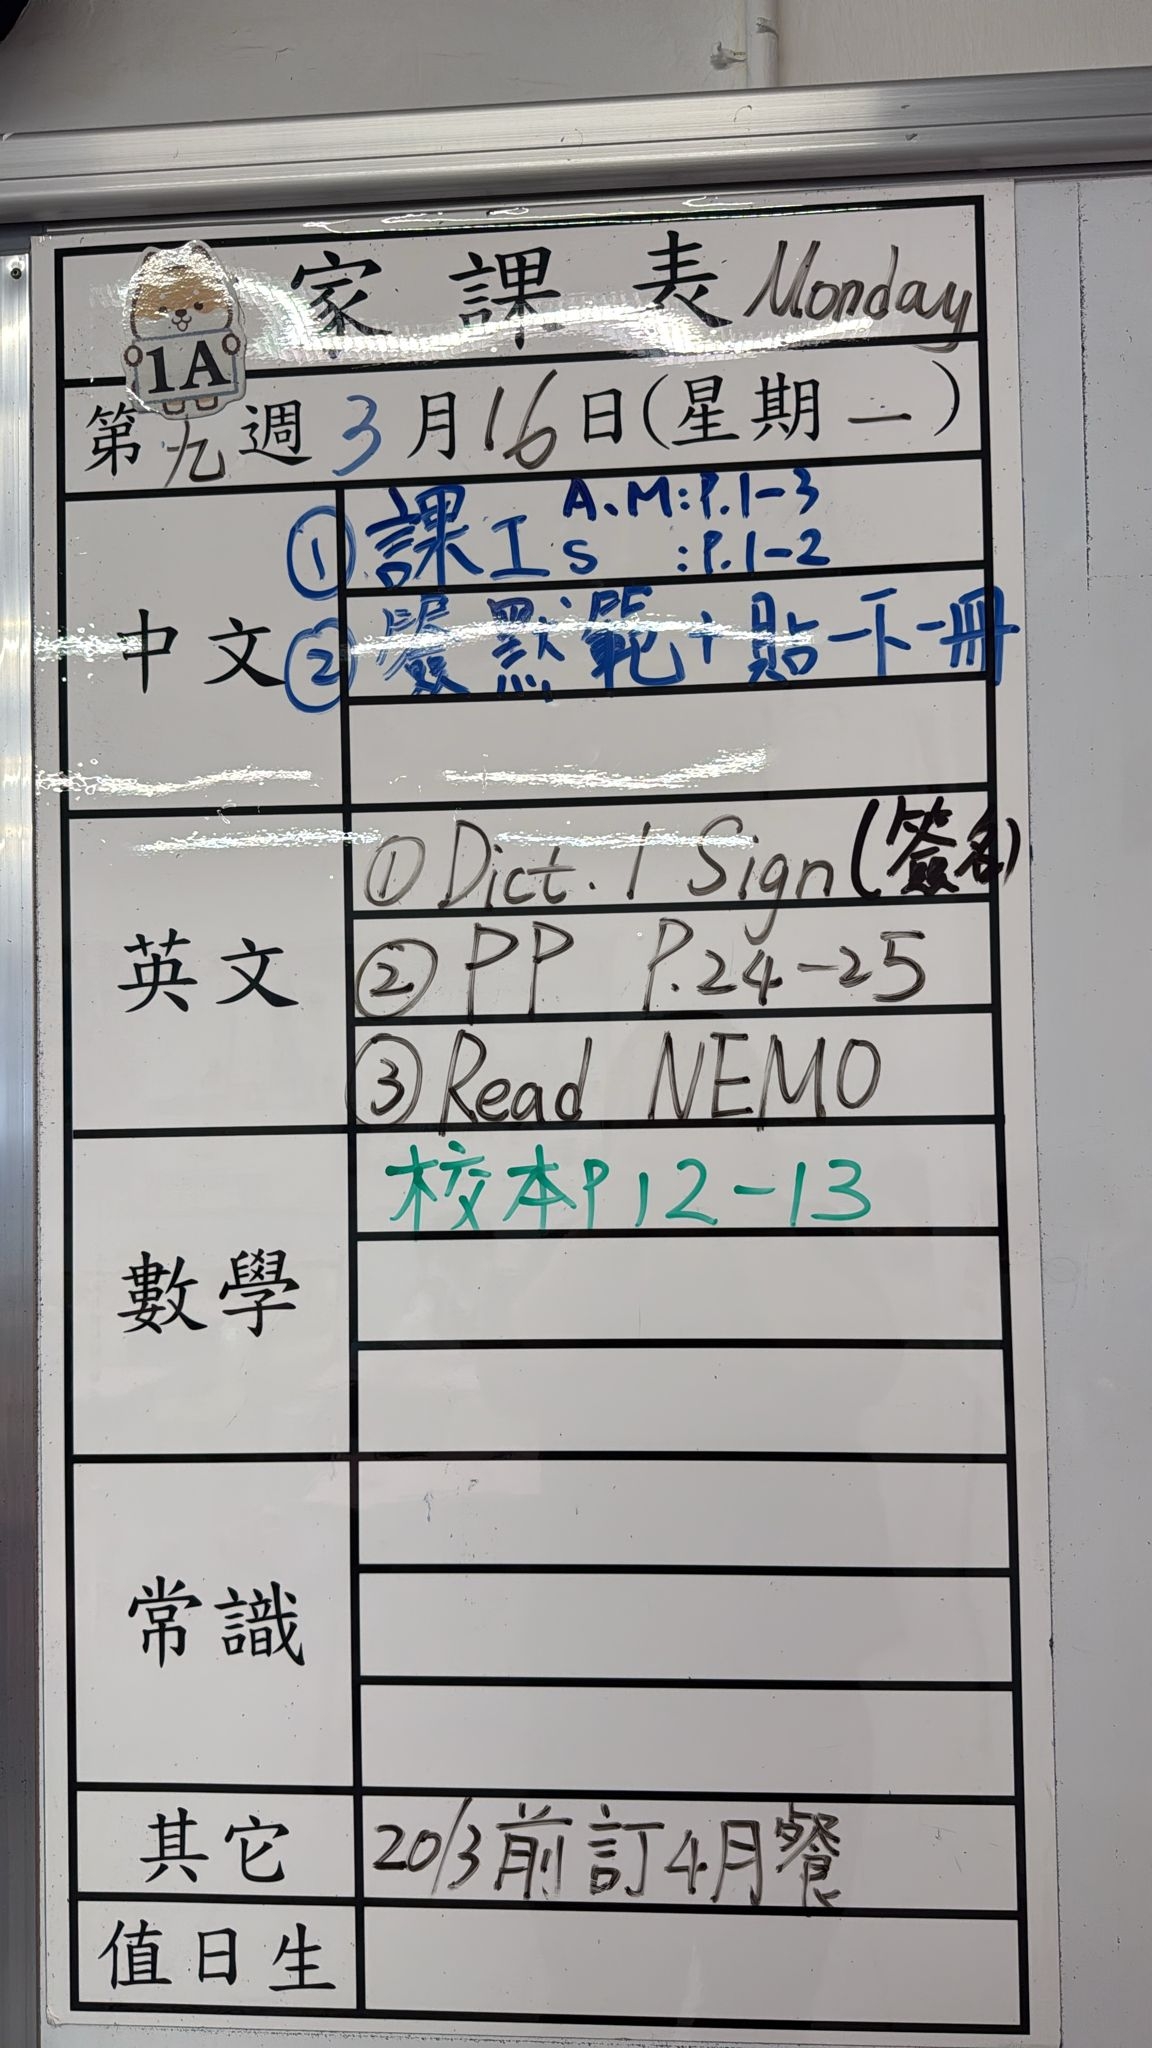 家課表 Monday
1A
第九週 3月16日(星期一)
中文
① 課工 A.M:P.1-3
S :P.1-2
② 默範+貼下冊
英文
① Dict. 1 Sign (簽名)
② PP P.24-25
③ Read NEMO
數學
校本P12-13
常識
其它
20/3前訂4月餐
值日生